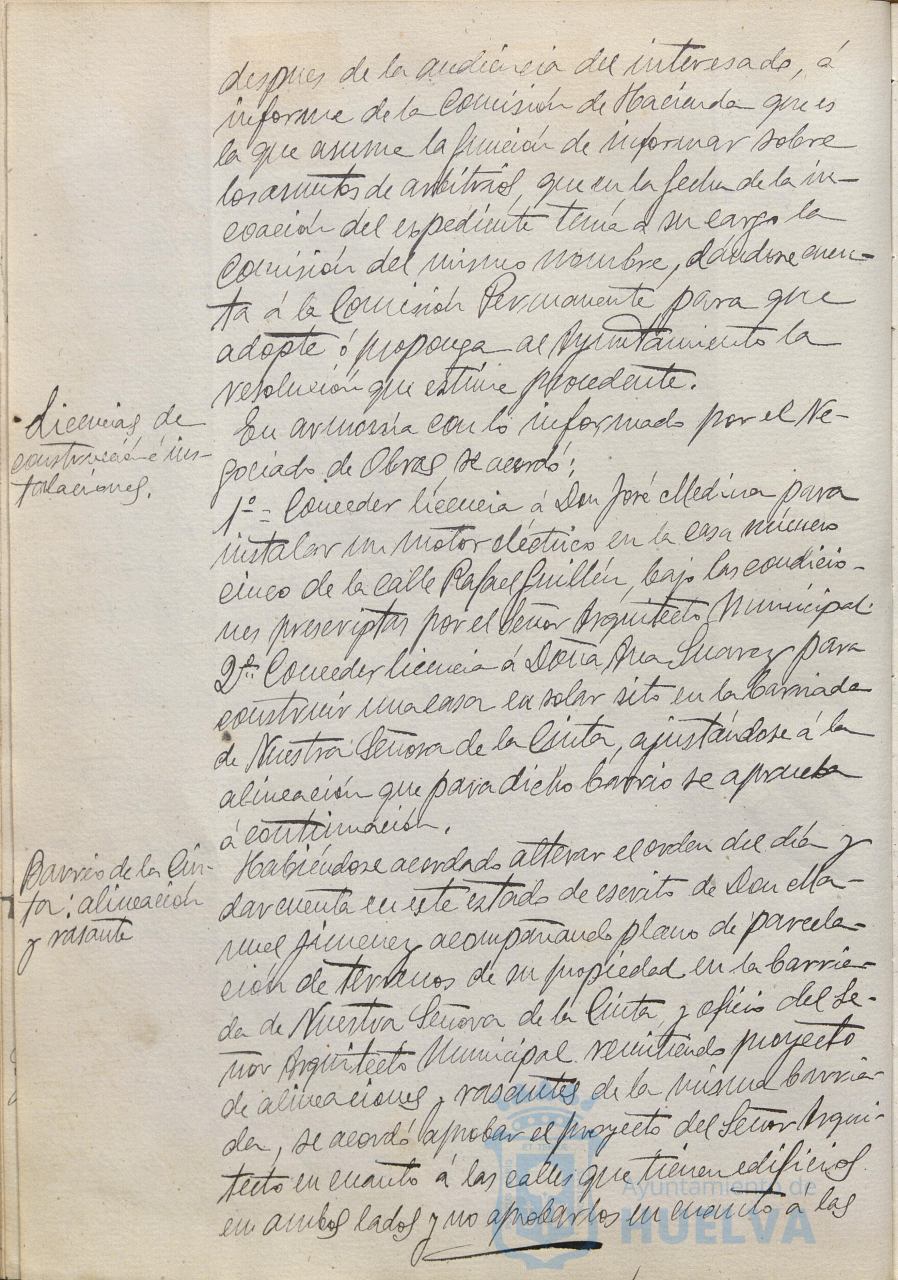 despues de la audiencia del interesado, á
informe de la Comisión de Hacienda que es
la que asume la función de informar sobre
los asuntos de arbitrios, que en la fecha de la in-
coación del expediente tenía a su cargo la
Comisión del mismo nombre, dándose cuen-
ta á la Comisión Permanente para que
adopte ó proponga al Ayuntamiento la
resolución que estime procedente.
Licencias de
construcción é ins-
talaciones.
En armonía con lo informado por el Ne-
gociado de Obras, se acordó:
1º = Conceder licencia á Don José Medina para
instalar un motor eléctrico en la casa número
cinco de la calle Rafael Guillén, bajo las condicio-
nes prescriptas por el Señor Arquitecto Municipal.
2º: Conceder licencia á Doña Ana Suarez para
construir una casa en solar sito en la barriada
de Nuestra Señora de la Cinta, ajustándose á la
alineación que para dicho barrio se aprueba
á continuación.
Barrio de la Cin-
ta: alineación
y rasante
Habiéndose acordado alterar el orden del día y
dar cuenta en este estado de escrito de Don Ma-
nuel Jimenez acompañando plano de parcela-
ción de terrenos de su propiedad en la barria-
da de Nuestra Señora de la Cinta, y oficio del Se-
ñor Arquitecto Municipal remitiendo proyecto
de alineaciones y rasantes de la misma barria-
da, se acordó aprobar el proyecto del Señor Arqui-
tecto en cuanto á las calles que tienen edificios
en ambos lados y no aprobarlos en cuanto á las
Ayuntamiento de
HUELVA